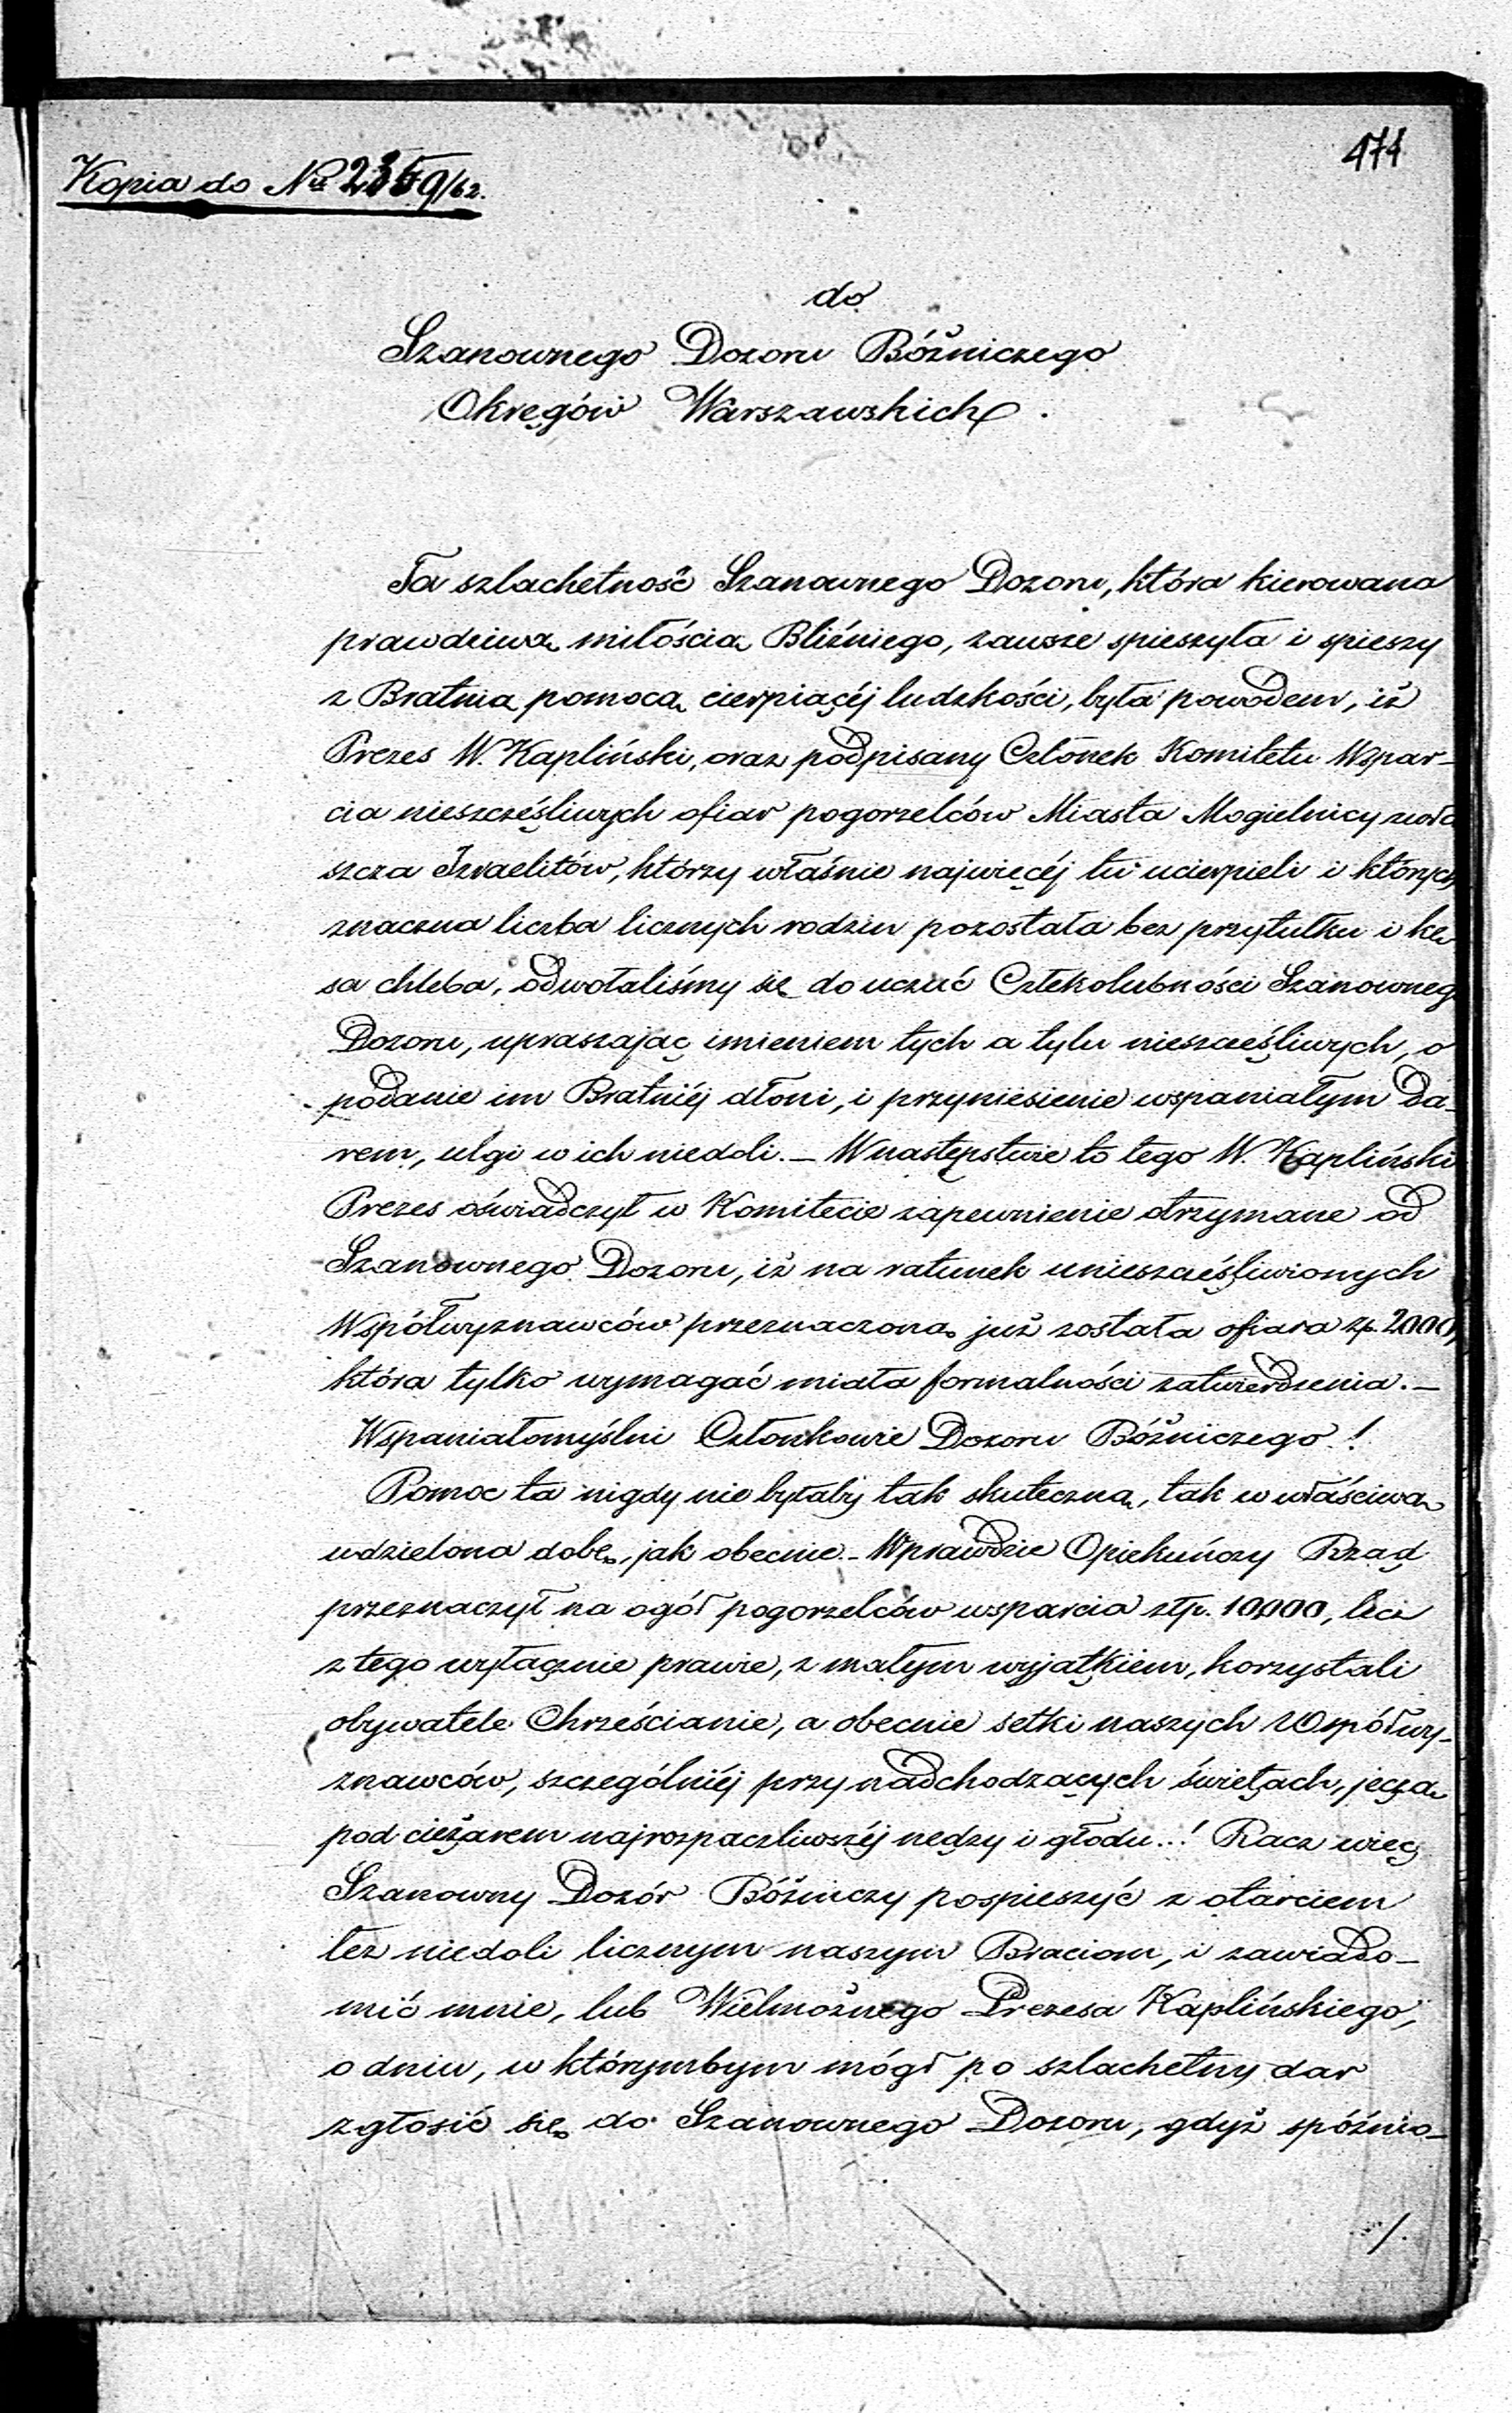 474
Kopia do № 2359/62.
do
Szanownego Dozoru Bóżniczego
Okręgów Warszawskich.
Ta szlachetność Szanownego Dozoru, która kierowana
prawdziwą miłością Bliźniego, zawsze spieszyła i spieszy
z Bratnią pomocą cierpiącéj ludzkości, była powodem, iż
Prezes W. Kapliński, oraz podpisany Członek Komitetu Wspar-
cia nieszczęśliwych ofiar pogorzelców Miasta Mogielnicy zwła
szcza Izraelitów, którzy właśnie najwięcéj tu ucierpieli i których
znaczna liczba licznych rodzin pozostała bez przytułku i kę
sa chleba, odwołaliśmy się do uczuć Człekolubności Szanowneg
Dozoru, upraszając imieniem tych a tylu nieszczęśliwych, o
podanie im Bratniéj dłoni, i przyniesienie wspaniałym da-
rem, ulgi w ich niedoli. — W następstwie to tego W. Kapliński
Prezes oświadczył w Komitecie zapewnienie otrzymane od
Szanownego Dozoru, iż na ratunek unieszczęśliwionych
Współwyznawców przeznaczoną już została ofiara zp. 2000,
która tylko wymagać miała formalności zatwierdzenia. —
Wspaniałomyślni Członkowie Dozoru Bóżniczego!
Pomoc ta nigdy nie byłaby tak skuteczną, tak w właściwą
udzielona dobę, jak obecnie. — Wprawdzie Opiekuńczy Rząd
przeznaczył na ogół pogorzelców wsparcia złp. 10000, lecz
z tego wyłącznie prawie, z małym wyjątkiem, korzystali
obywatele Chrześcianie, a obecnie setki naszych Współwy-
znawców, szczególniéj przy nadchodzących świętach, jęczą
pod ciężarem najrozpaczliwszéj nędzy i głodu..! Racz więc
Szanowny Dozór Bóżniczy pospieszyć z otarciem
łez niedoli licznym naszym Braciom, i zawiado-
mić mnie, lub Wielmożnego Prezesa Kaplińskiego,
o dniu, w którymbym mógł po szlachetny dar
zgłosić się do Szanownego Dozoru, gdyż spóźnio-
./.